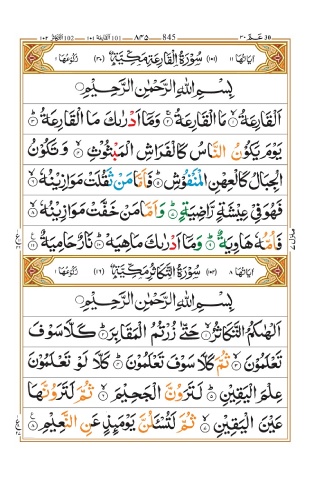 التكاثر ١٠٢ 102 القارعة ١٠١ 101 ٨٤٥ 845 عم ٣٠ 30
اٰیَاتُهَا ١١ (١٠١) سُوْرَةُ الْقَارِعَةِ مَكِّیَّةٌ (٣٠) رُكُوْعُهَا ١
بِسْمِ اللهِ الرَّحْمٰنِ الرَّحِیْمِ
اَلْقَارِعَةُ ۙ١ مَا الْقَارِعَةُ ۚ٢ وَمَاۤ اَدْرٰىكَ مَا الْقَارِعَةُ ؕ٣
یَوْمَ یَكُوْنُ النَّاسُ كَالْفَرَاشِ الْمَبْثُوْثِ ۙ٤ وَ تَكُوْنُ
الْجِبَالُ كَالْعِهْنِ الْمَنْفُوْشِ ؕ٥ فَاَمَّا مَنْ ثَقُلَتْ مَوَازِیْنُهٗ ۙ٦
فَهُوَ فِیْ عِیْشَةٍ رَّاضِیَةٍ ؕ٧ وَ اَمَّا مَنْ خَفَّتْ مَوَازِیْنُهٗ ۙ٨
فَاُمُّهٗ هَاوِیَةٌ ؕ٩ وَ مَاۤ اَدْرٰىكَ مَا هِیَهْ ؕ١٠ نَارٌ حَامِیَةٌ ١١
اٰیَاتُهَا ٨ (١٠٢) سُوْرَةُ التَّكَاثُرِ مَكِّیَّةٌ (١٦) رُكُوْعُهَا ١
بِسْمِ اللهِ الرَّحْمٰنِ الرَّحِیْمِ
اَلْهٰىكُمُ التَّكَاثُرُ ۙ١ حَتّٰی زُرْتُمُ الْمَقَابِرَ ؕ٢ كَلَّا سَوْفَ
تَعْلَمُوْنَ ۙ٣ ثُمَّ كَلَّا سَوْفَ تَعْلَمُوْنَ ؕ٤ كَلَّا لَوْ تَعْلَمُوْنَ
عِلْمَ الْیَقِیْنِ ؕ٥ لَتَرَوُنَّ الْجَحِیْمَ ۙ٦ ثُمَّ لَتَرَوُنَّهَا
عَیْنَ الْیَقِیْنِ ۙ٧ ثُمَّ لَتُسْـَٔلُنَّ یَوْمَىِٕذٍ عَنِ النَّعِیْمِ ٨